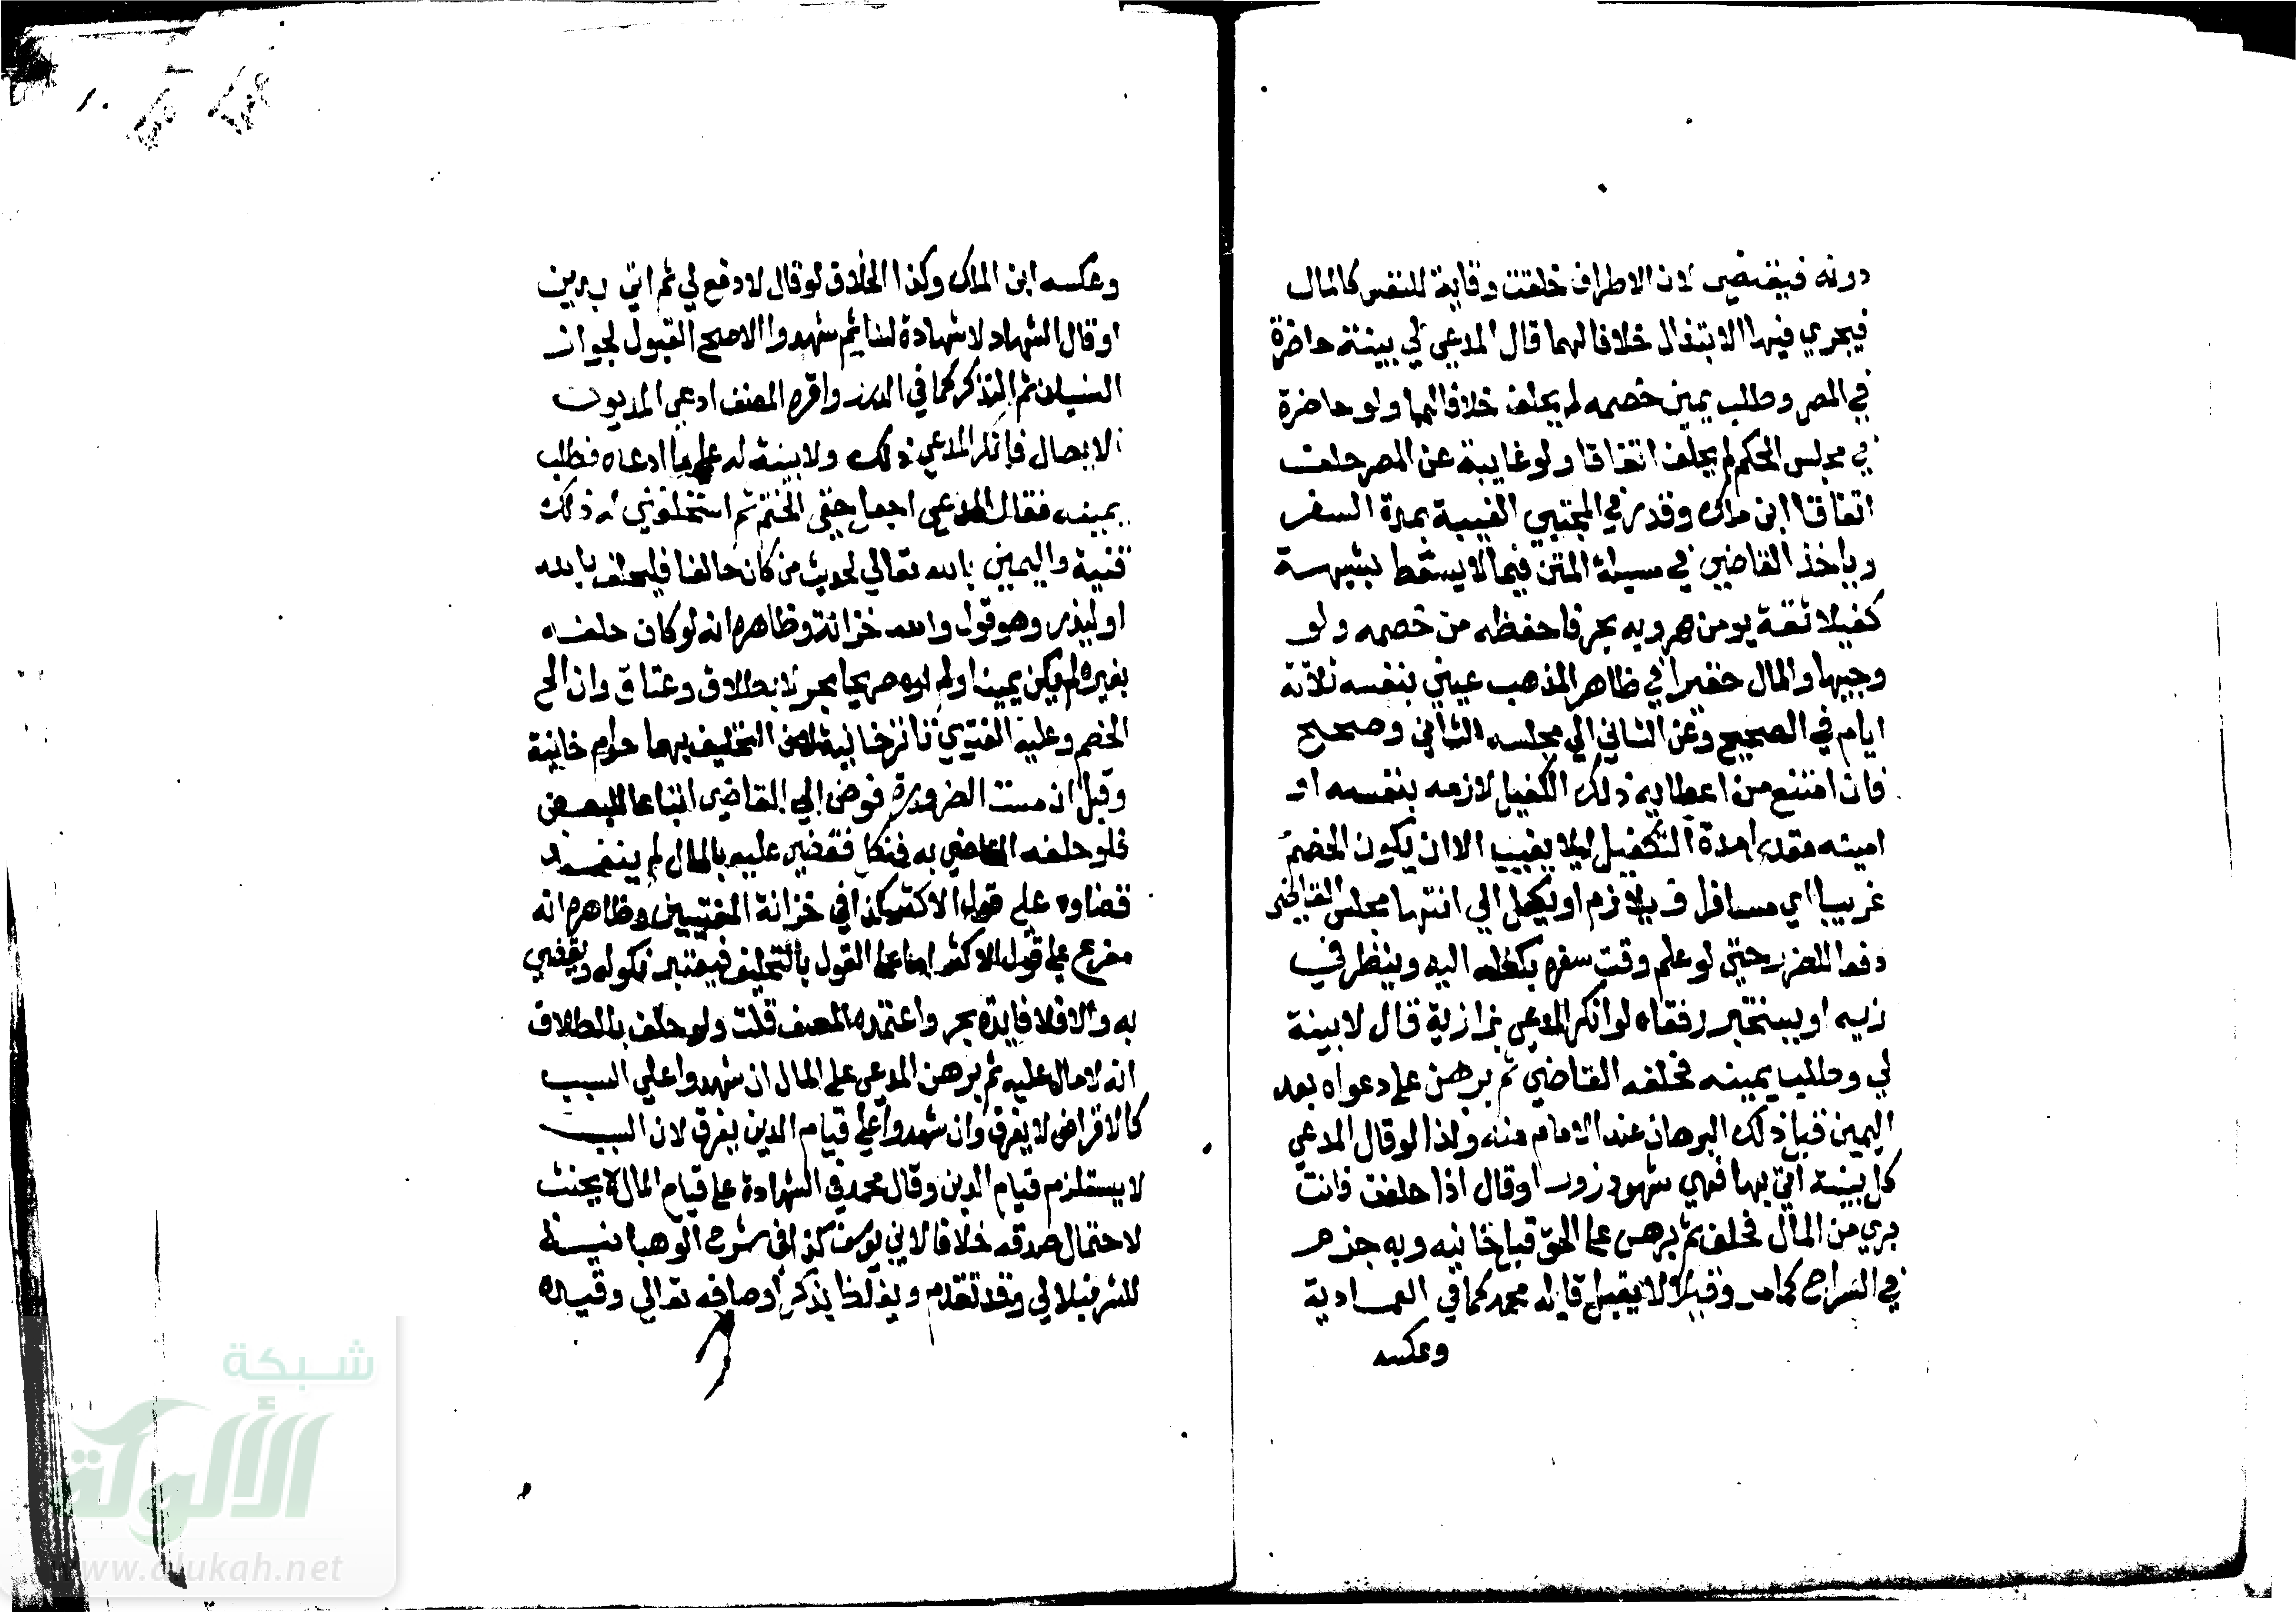 دونه فيقتضي لان الاطراف خلقت وقاية للنفس كالمال
فيجري فيها الابتذال خلافا لهما قال المدعي لي بينة حاضرة
في المصر وطلب يمين خصمه لم يحلف خلافا لهما ولو حاضرة
في مجلس الحكم لم يحلف اتفاقا ولو غايبة عن المصر حلف
اتفاقا ابن ملك وقدر في المجتبي الغيبة بمدة السفر
وياخذ القاضي في مسيلة المتن فيما لا يسقط بشبهة
كفيلا ثقة يومن هروبه بحر فاحفظه من خصمه ولو
وجيها والمال حقيرا في ظاهر المذهب عيني بنفسه ثلاثة
ايام في الصحيح وعن الثاني الي مجلسه الثاني وصحيح
فان امتنع من اعطايه ذلك الكفيل لازمه بنفسه او
امينه مقدار مدة التكفيل ليلا يغيب الا ان يكون الخصم
غريبا اي مسافرا فيلازم او يكفل الي انتها مجلس القاضي
دفعا للضرر حتي لو علم وقت سفره يكفله اليه وينظر في
زيه او يستخبر رفقاه لو انكر المدعي بزازية قال لا بينة
لي وطلب يمينه فحلفه القاضي ثم برهن علي دعواه بعد
اليمين قبل ذلك البرهان عند الامام منه وكذا لو قال المدعي
كل بينة اتي بها فهي شهود زور او قال اذا حلفت فانت
بري من المال فحلف ثم برهن علي الحق قبل خانيه وبه جزم
في السراج كما مر وقيل لا يقبل قايله محمد كما في العمادية
وعكسه
وعكسه ابن الملك وكذا الخلاف لو قال لا دفع لي ثم اتي بدين
او قال الشهاد لا شهادة لنا ثم شهدوا الاصح القبول لجواز
النسيان ثم التذكر كما في الدرر واقره المصنف ادعي المديون
الايصال فانكر المدعي ذلك ولا بينة له علي ما ادعاه فطلب
يمينه فقال المدعي اجعل حقي في الختم ثم استحلفوني له ذلك
قنية واليمين بالله تعالي لحديث من كان حالفا فليحلف بالله
او ليذر وهو قول والله خزانة وظاهره انه لو كان حلفه
بغيره لم يكن يمينا ولم اره صريحا بحر لا بطلاق وعتاق وان الح
الخصم وعليه الفتوي تاترخانية لان التحليف بهما حرام خانية
وقيل ان مست الضرورة فوض الي القاضي اتباعا للبعض
فلو حلفه القاضي به فنكل فقضي عليه بالمال لم ينفذ
قضاوه علي قول الاكثر كذا في خزانة المفتيين وظاهره انه
مفرع علي قول الاكثر اما علي القول بالتحليف فيعتبر نكوله ويقضي
به والا فلا فايدة بحر واعتمده المصنف قلت ولو حلف بالطلاق
انه لا مال عليه ثم برهن المدعي علي المال ان شهدوا علي السبب
كالاقراض لا يفرق وان شهدوا علي قيام الدين يفرق لان السبب
لا يستلزم قيام الدين وقال محمد في الشهادة علي قيام المال لا يحنث
لاحتمال صدقه خلافا لابي يوسف كذا في شرح الوهبانية
للشرنبلالي وقد تقدم ويغلظ بذكر اوصافه تعالي وقيده
شبكة
الألوكة
www.alukah.net